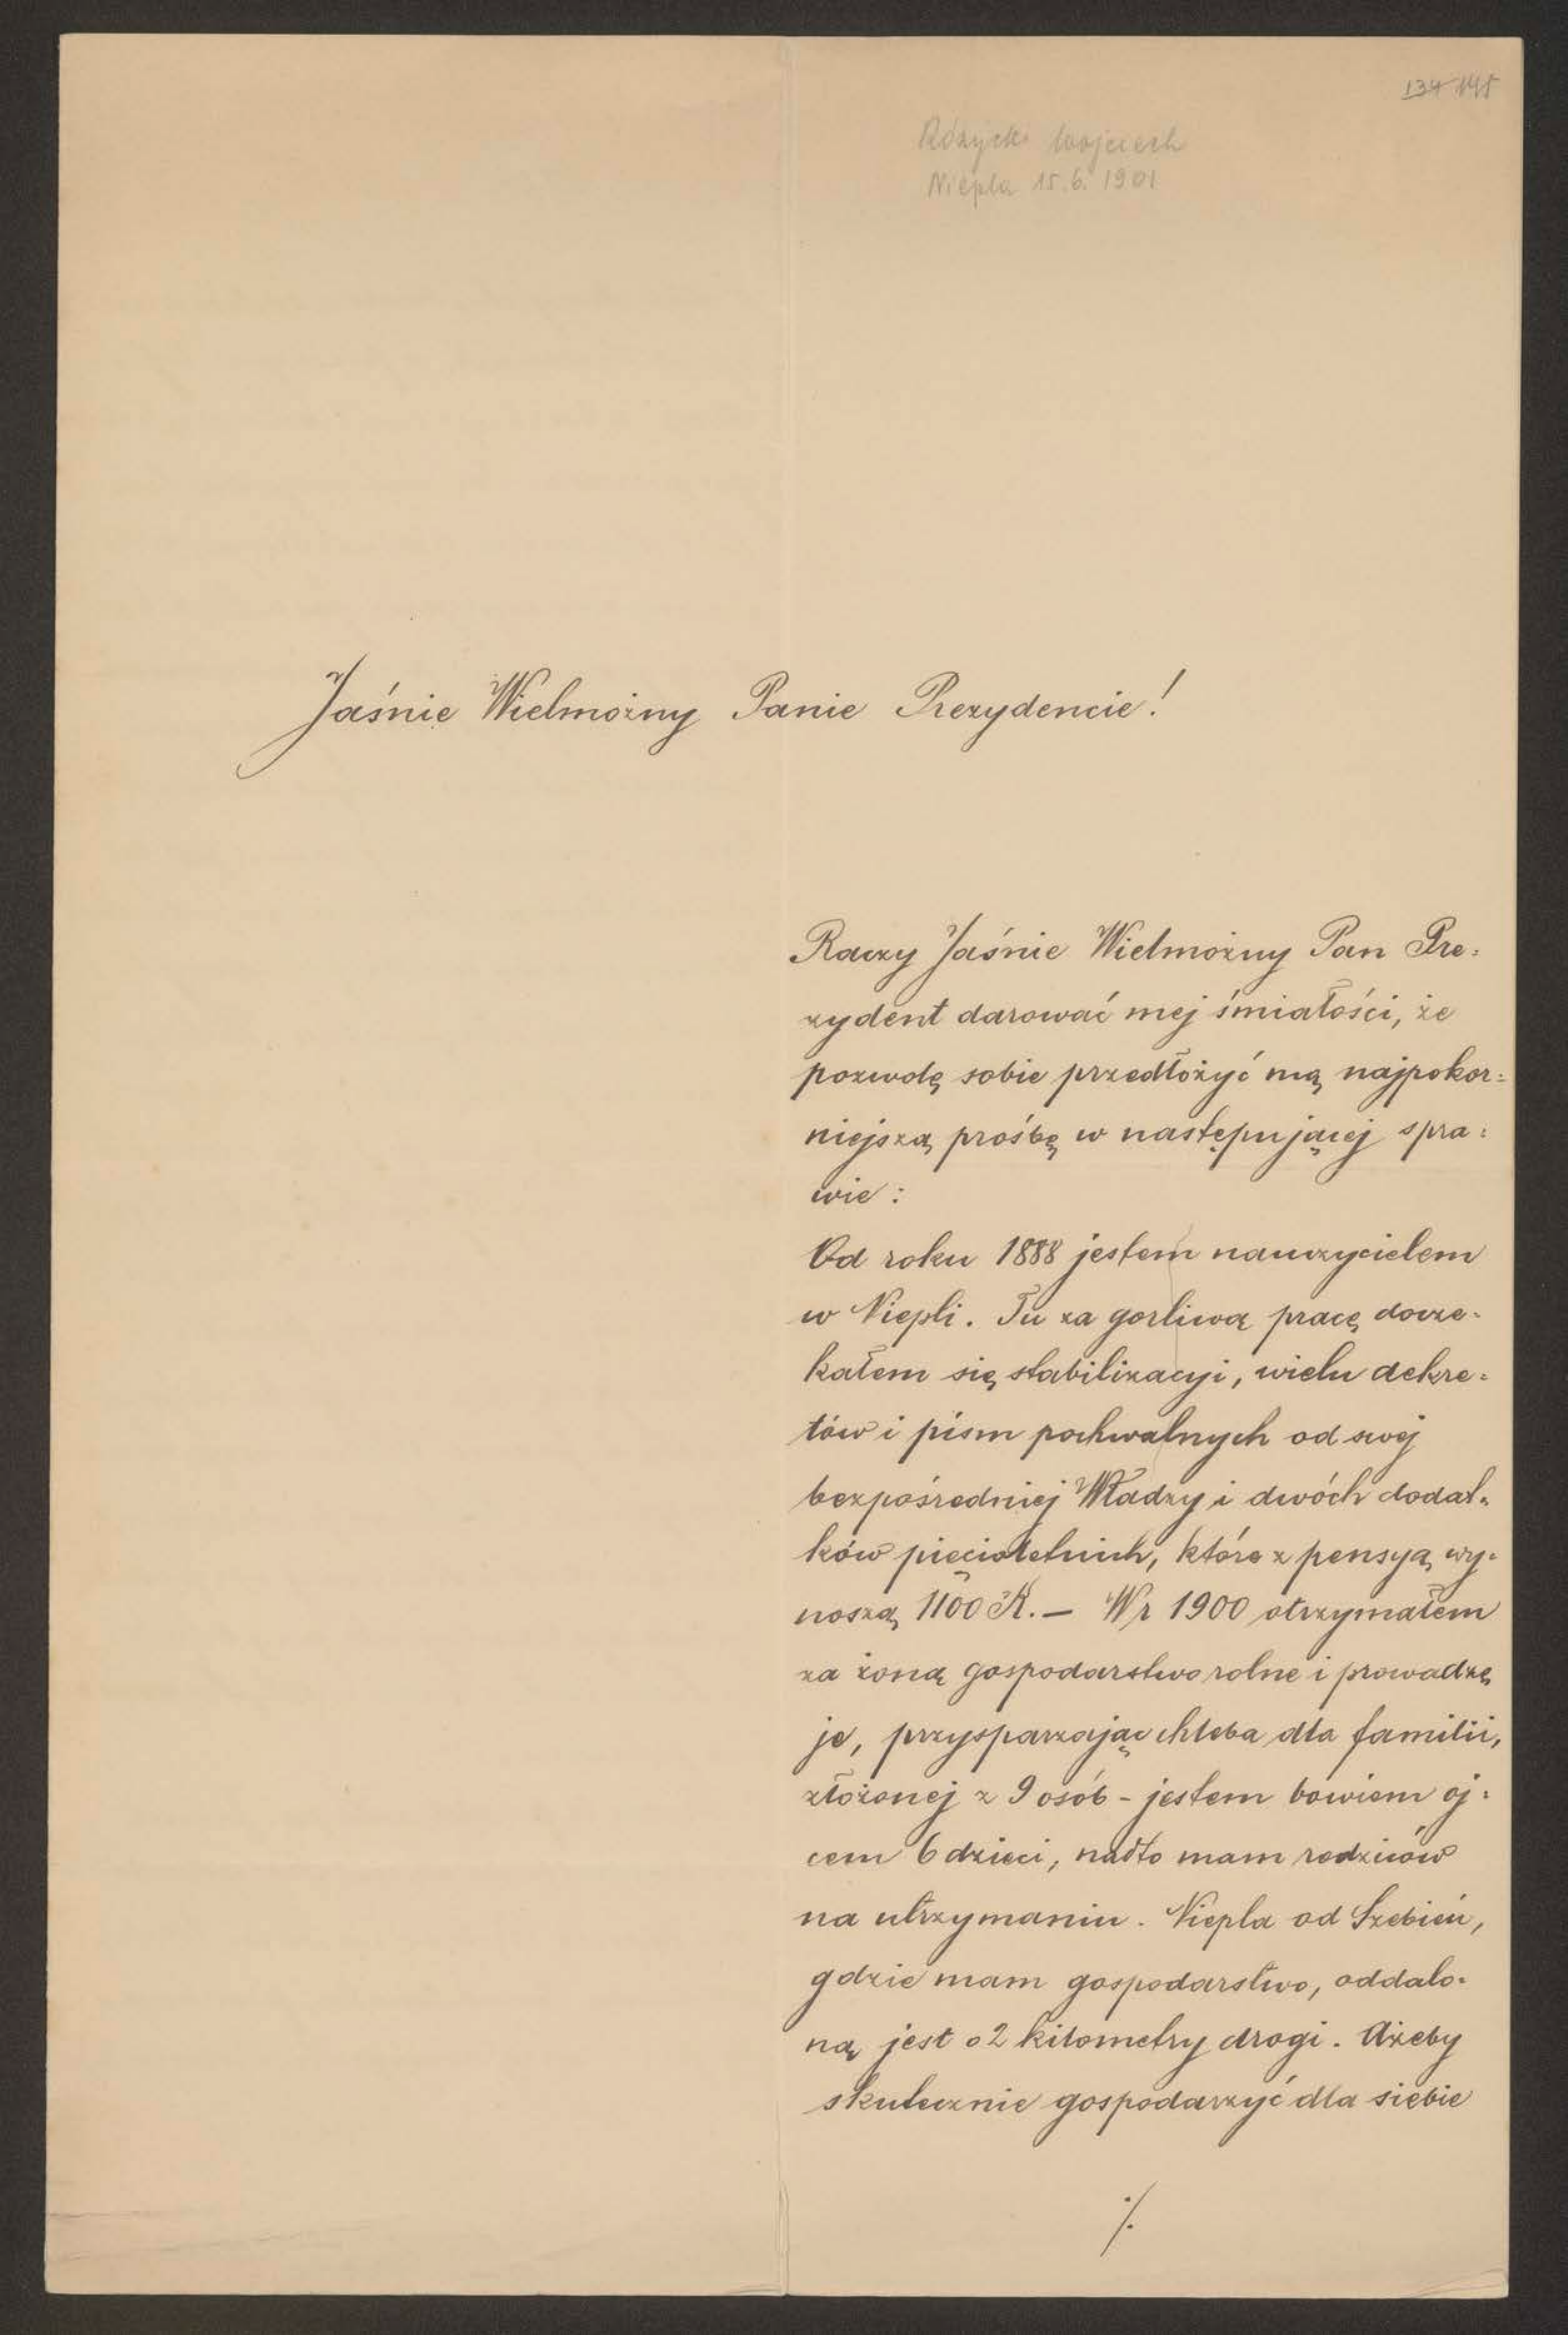 134 145
Różycki Wojciech
Niepla 15.6.1901
Jaśnie Wielmożny Panie Prezydencie!
Raczy Jaśnie Wielmożny Pan Pre=
zydent darować mej śmiałości, że
pozwolę sobie przedłożyć mą najpokor=
niejszą prośbę w następującej spra=
wie:
Od roku 1888 jestem nauczycielem
w Niepli. Tu za gorliwą pracę docze=
kałem się stabilizacyi, wielu dekre=
tów i pism pochwalnych od swej
bezpośredniej Władzy i dwóch dodat=
ków pięcioletnich, które z pensyą wy=
noszą 1100 K. — W r 1900 otrzymałem
za żoną gospodarstwo rolne i prowadzę
je, przysparzając chleba dla familii,
złożonej z 9 osób - jestem bowiem oj=
cem 6 dzieci, nadto mam rodziców
na utrzymaniu. Niepla od Szebień,
gdzie mam gospodarstwo, oddalo=
ną jest o 2 kilometry drogi. Ażeby
skutecznie gospodarzyć dla siebie
./.